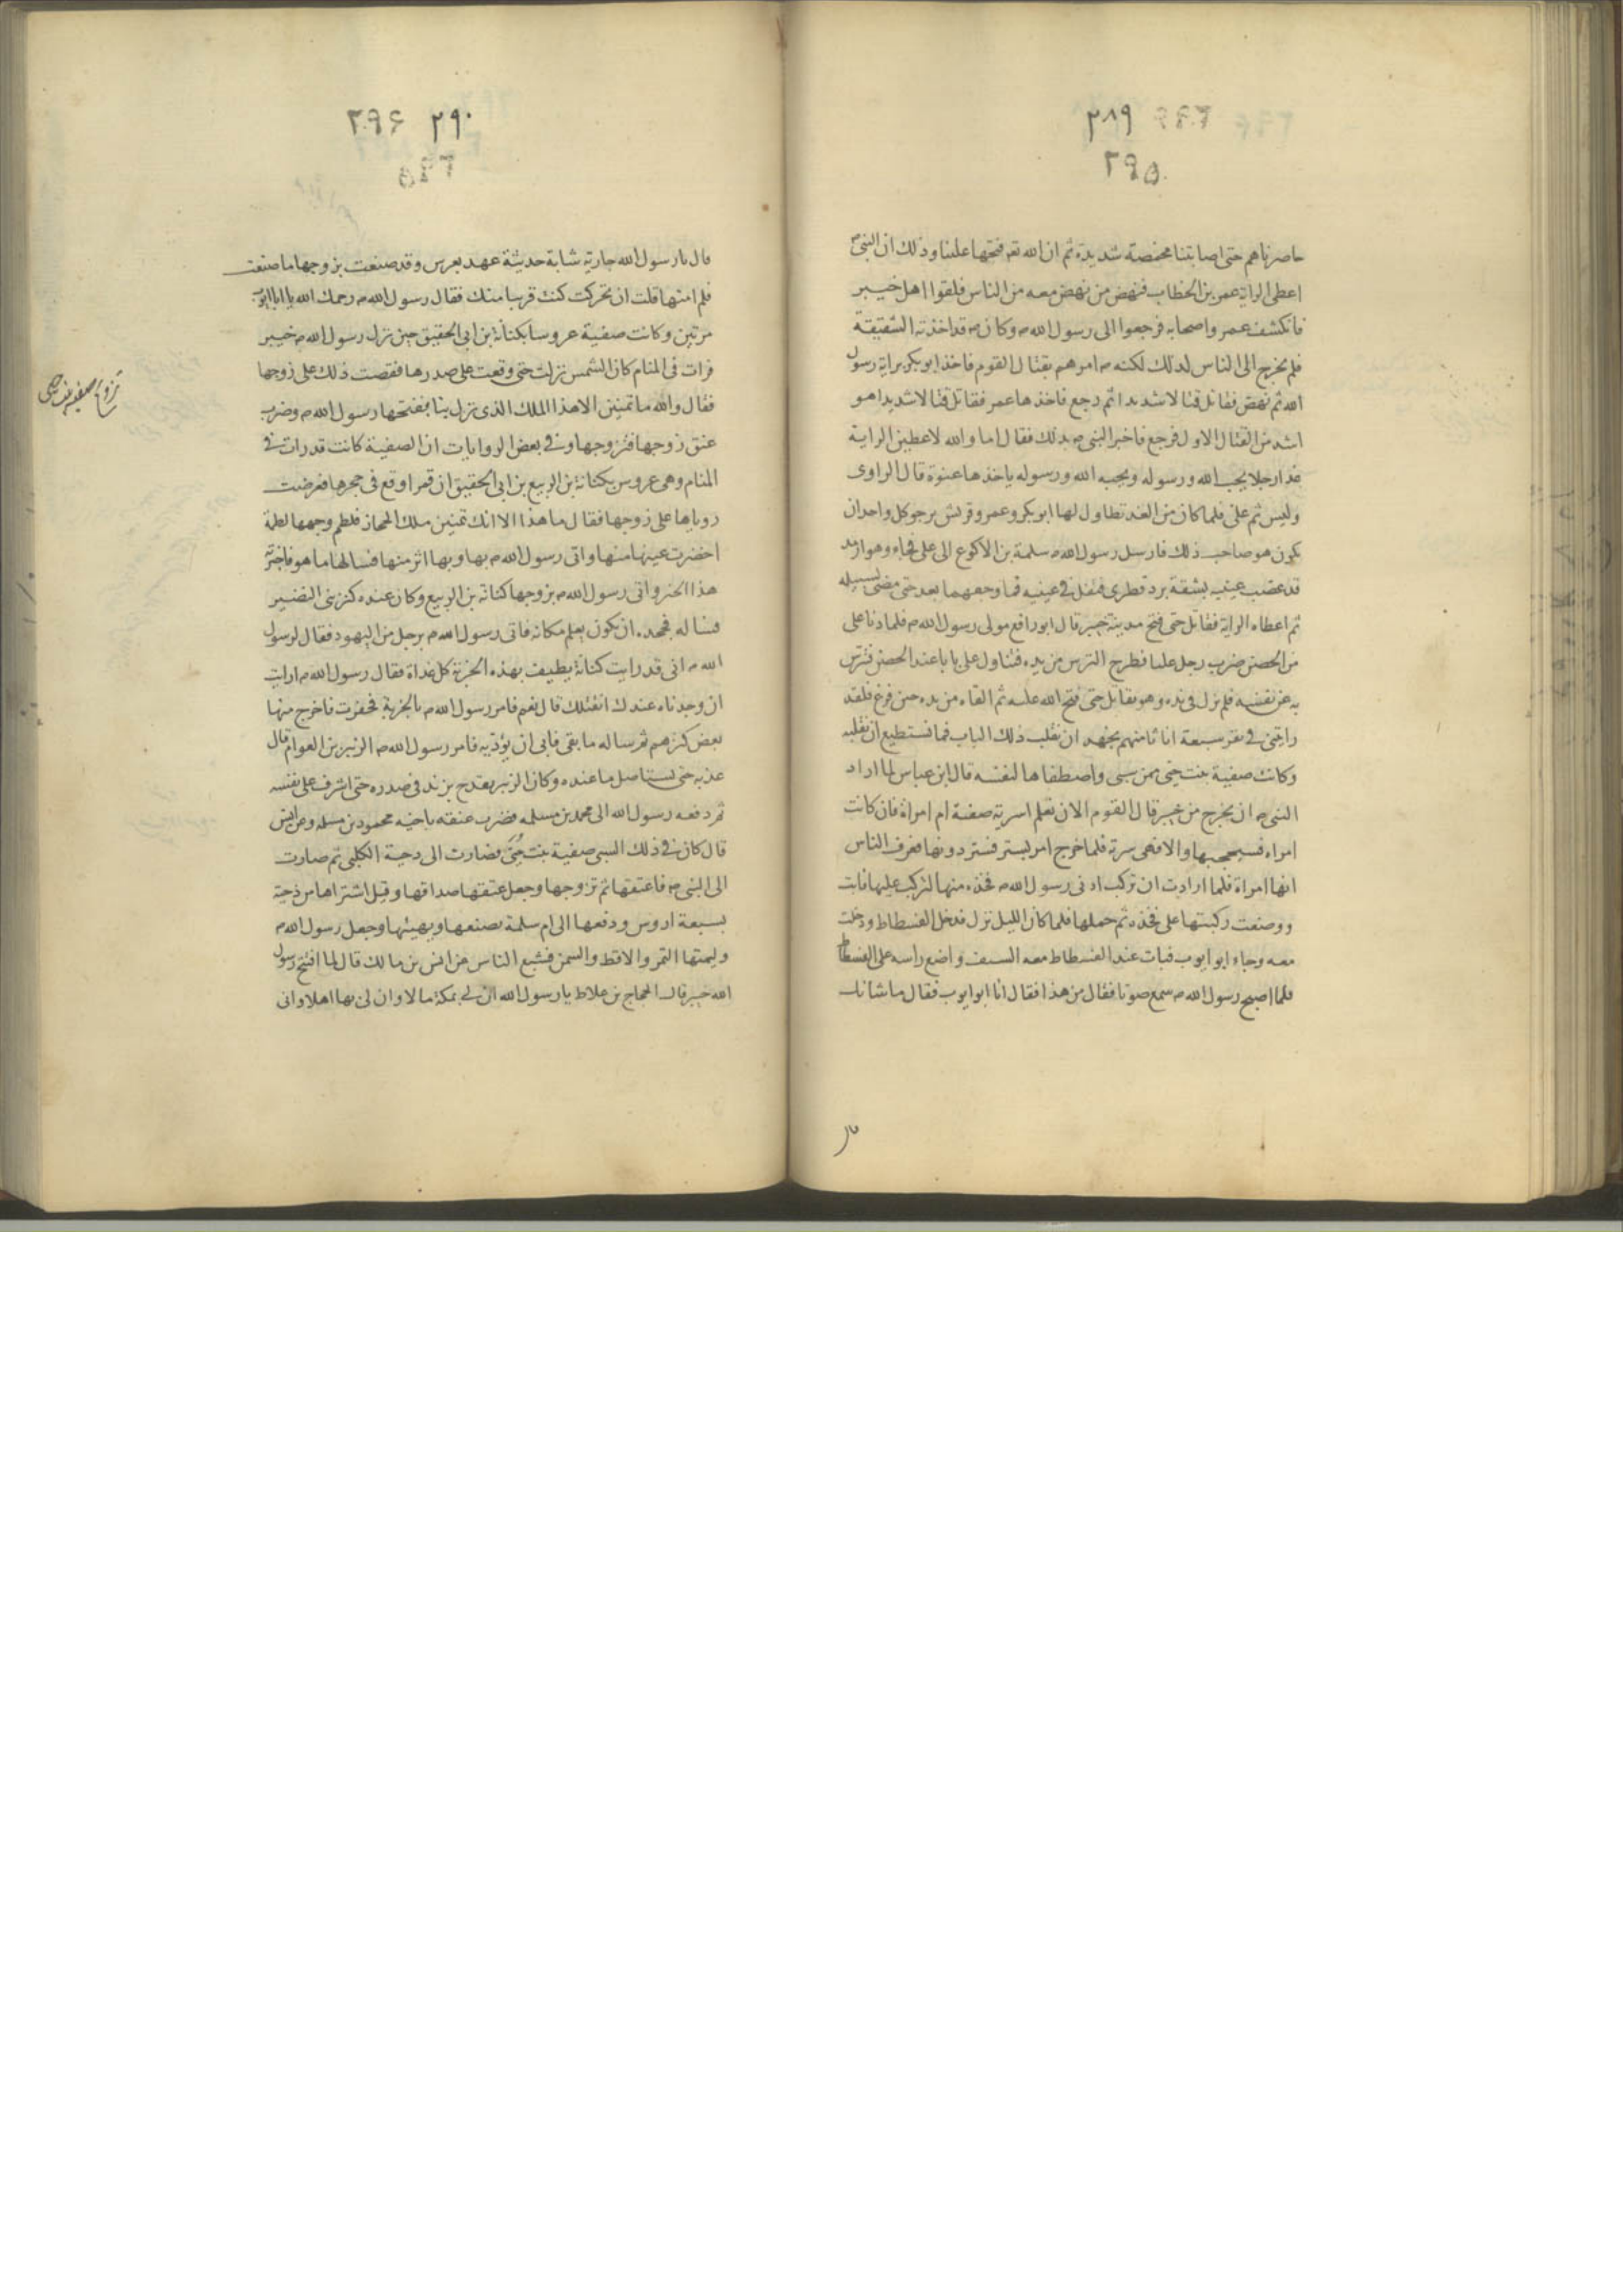 ٢٨٩
٢٩٥
حاصرناهم حتى اصابتنا مخمصة شديدة ثم ان الله تعه فتحها علينا وذلك ان النبى م
اعطى الراية عمر بن الخطاب فنهض من نهض معه من الناس فلقوا اهل خيبر
فانكشف عمر واصحابه فرجعوا الى رسول الله م وكان م قد اخذته الشقيقة
فلم يخرج الى الناس لذلك لكنه م امرهم بقتال القوم فاخذ ابو بكر براية رسول
الله ثم نهض فقاتل قتالا شديدا ثم رجع فاخذها عمر فقاتل قتالا شديدا هو
اشد من القتال الاول فرجع فاخبر النبى م بذلك فقال اما والله لاعطين الراية
غدا رجلا يحب الله ورسوله ويحبه الله ورسوله ياخذها عنوة قال الراوى
وليس ثم على فلما كان من الغد تطاول لها ابو بكر وعمر وقريش يرجو كل واحد ان
يكون هو صاحب ذلك فارسل رسول الله م سلمة بن الاكوع الى على فجاء وهو ارمد
قد عصب عينيه بشقة برد قطرى فتفل فى عينيه فما وجعهما بعد حتى مضى لسبيله
ثم اعطاه الراية فقاتل حتى فتح مدينة خيبر قال ابو رافع مولى رسول الله م فلما دنا على
من الحصن ضرب رجل عليا فطرح الترس من يده فتناول على بابا عند الحصن فترس
به عن نفسه فلم يزل فى يده وهو يقاتل حتى فتح الله عليه ثم القاه من يده حين فرغ فلقد
راتينى فى نفر سبعة انا ثامنهم نجهد ان نقلب ذلك الباب فما نستطيع ان نقلبه
وكانت صفية بنت حيى ممن سبى واصطفاها لنفسه قال ابن عباس لما اراد
النبى م ان يخرج من خيبر قال القوم الان نعلم اسرية صفية ام امراة فان كانت
امراه فسيحجبها والا فهى سرية فلما خرج امر بستر فستر دونها فعرف الناس
انها امراة فلما ارادت ان تركب ادنى رسول الله م فخذه منها لتركب عليها فابت
ووضعت ركبتها على فخذه ثم حملها فلما كان الليل نزل فدخل الفسطاط ودخلت
معه وجاء ابو ايوب فبات عند الفسطاط معه السيف واضع راسه على الفسطاط
فلما اصبح رسول الله م سمع صوتا فقال من هذا فقال انا ابو ايوب فقال ما شانك
٢٩٠ ٢٩۶
قال يا رسول الله جارية شابة حديثة عهد بعرس وقد صنعت بزوجها ما صنعت
فلم امنها قلت ان تحركت كنت قريبا منك فقال رسول الله م رحمك الله يا ابا ايوب
مرتين وكانت صفية عروسا بكنانة بن ابى الحقيق حين نزل رسول الله م خيبر
فرات فى المنام كان الشمس نزلت حتى وقعت على صدرها فقصت ذلك على زوجها
فقال والله ما تمنين الا هذا الملك الذى نزل بنا ففتحها رسول الله م وضرب
عنق زوجها فتزوجها وفى بعض الروايات ان الصفية كانت قد رات فى
المنام وهى عروس بكنانة بن الربيع بن ابى الحقيق ان قمرا وقع فى حجرها فعرضت
روياها على زوجها فقال ما هذا الا انك تمنين ملك الحجاز فلطم وجهها لطمة
اخضرت عينها منها واتى رسول الله م بها وبها اثر منها فسالها ما هو فاخبرته
هذا الخبر واتى رسول الله م بزوجها كنانة بن الربيع وكان عنده كنز بنى النضير
فساله فجحده ان يكون يعلم مكانه فاتى رسول الله م برجل من اليهود فقال لرسول
الله م انى قد رايت كنانة يطيف بهذه الخربة كل غداة فقال رسول الله م ارايت
ان وجدناه عندك انقتلك قال نعم فامر رسول الله م بالخربة فحفرت فاخرج منها
بعض كنزهم ثم ساله ما بقى فابى ان يؤديه فامر رسول الله م الزبير بن العوام قال
عذبه حتى تستاصل ما عنده وكان الزبير يقدح بزند فى صدره حتى اشرف على نفسه
ثم دفعه رسول الله الى محمد بن مسلمه فضرب عنقه باخيه محمود بن مسلمه وعن انس
قال كان فى ذلك السبى صفية بنت حيى فصارت الى دحية الكلبى ثم صارت
الى النبى م فاعتقها ثم تزوجها وجعل عتقها صداقها وقيل اشتراها من دحية
بسبعة اروس ودفعها الى ام سلمة تصنعها وتهيئها وجعل رسول الله م
وليمتها التمر والاقط والسمن فشبع الناس عن انس بن مالك قال لما افتتح رسول
الله خيبر قال الحجاج بن علاط يا رسول الله ان لى بمكة مالا وان لى بها اهلا وانى
تزوج صفيه بنت حيى